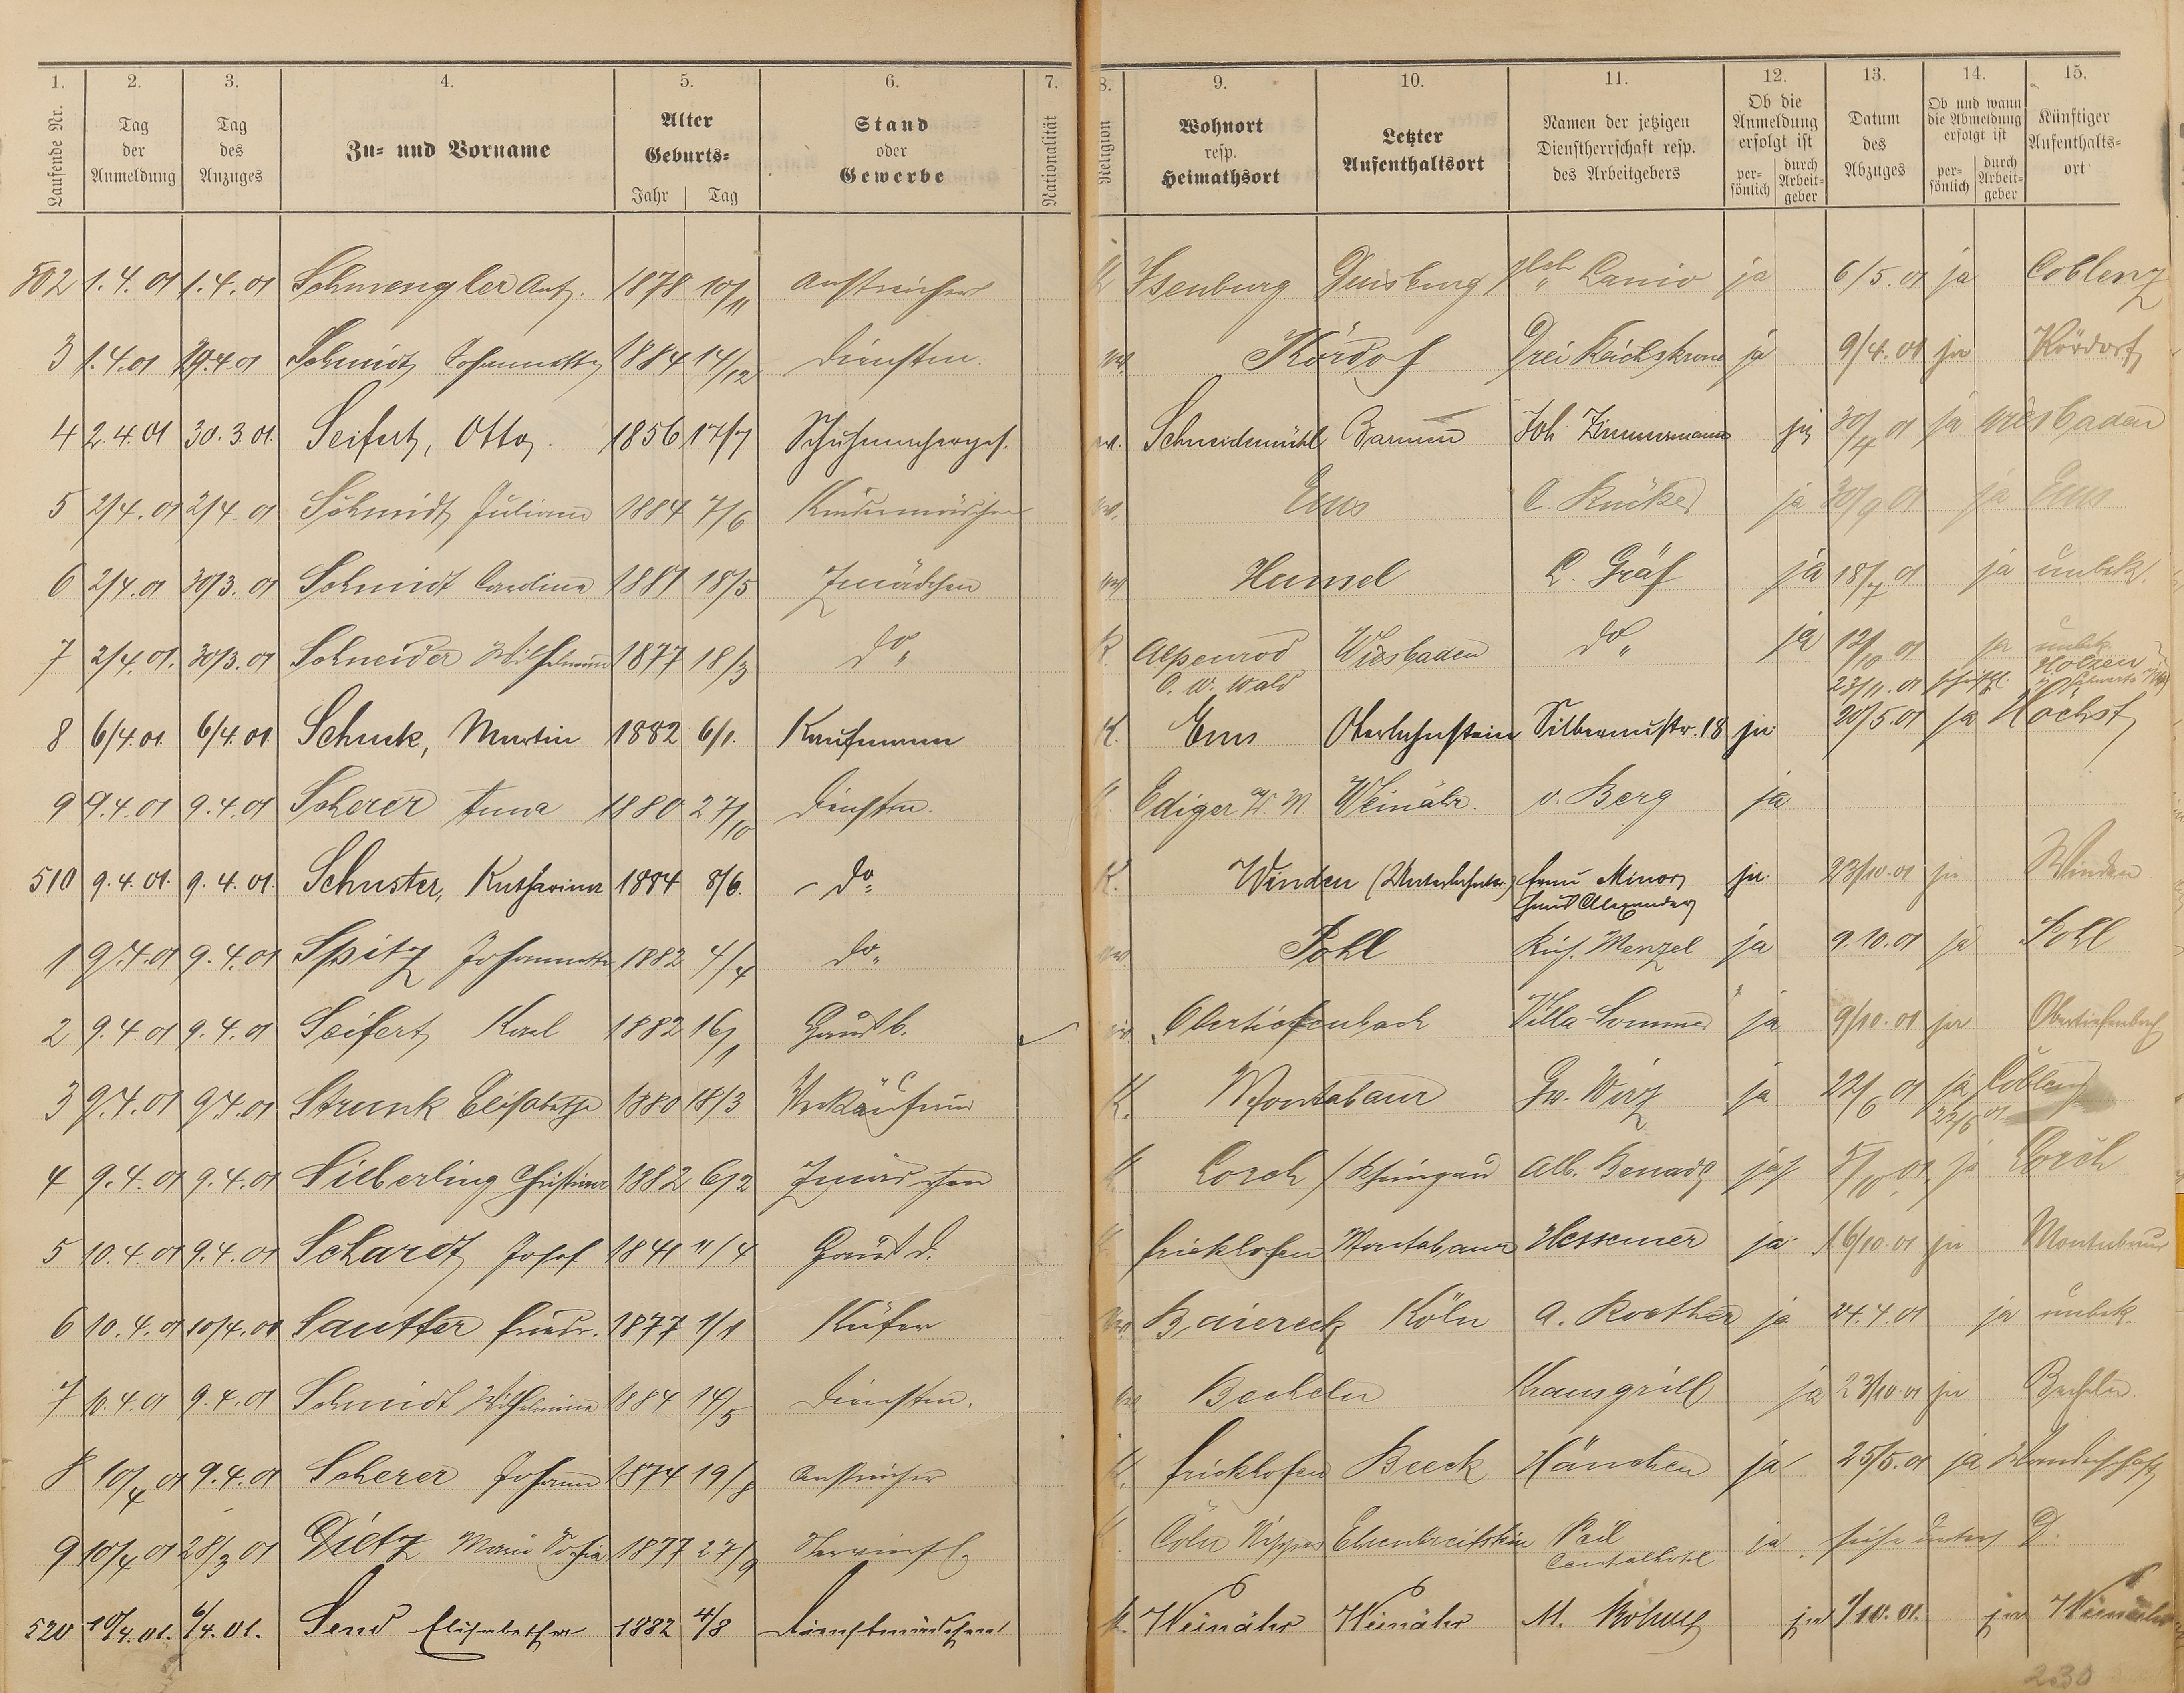 1. 2. 3. 4. 5. 6. 7. 8. 9. 10. 11. 12. 13. 14. 15.
Laufende Nr. Tag der Anmeldung Tag des Anzuges Zu- und Vorname Alter Geburts- Jahr Tag Stand oder Gewerbe Nationalität Religion Wohnort resp. Heimathsort Letzter Aufenthaltsort Namen der jetzigen Dienstherrschaft resp. des Arbeitgebers Ob die Anmeldung erfolgt ist persönlich durch Arbeitgeber Datum des Abzuges Ob und wann die Abmeldung erfolgt ist persönlich durch Arbeitgeber Künftiger Aufenthaltsort
502 1.4.01 1.4.01 Schwengler Ant. 1878 10/11 Anstreicher K Isenburg Duisburg Lanio ja 6/5.01 ja Coblenz
3 1.4.01 Schmidt Johannette 1884 14/12 Dienstm. ev. Kördof Drei Reichskrone ja 9/4.01 ja Kördorf
4 2.4.01 30.3.01. Seifert, Otto. 1856 17/7 Schuhmacherges. ev. Schneidemühl Barmen Joh Zimmermann ja 30/4 01 ja Wiesbaden
5 2/4.01 2/4.01 Schmidt Juliane 1884 7/6 Kindermädchen ev. Ems C. Rücker ja 30/9 01 ja Ems
6 2/4.01 30/3.01 Schmidt Caroline 1881 18/5 Zmädchen ev. Hunsel L. Gräf ja 18/7 01 ja unbek.
7 2/4.01. 30/3.01 Schneider Wilhelmine 1877 18/3 do „ K. Alpenrod Wiesbaden do „ ja 12/10 01 ja unbek
O. W. Wald 23/11.01
8 6/4.01 6/4.01 Schuck, Martin 1882 6/1. Kaufmann K. Ems Oberlahnstein Silberaustr. 18 ja 20/5.01 ja Höchst
9 9.4.01 9.4.01 Scherer Anna 1880 27/10 Dienstm. K. Ediger Weinähr. v. Berg ja
510 9.4.01. 9.4.01. Schuster, Katharina 1884 8/6. do K. Winden (Unterlahnkr.) Frau Minor ja. 23/10.01 ja Winden
Haus Alexander
1 9.4.01 9.4.01 Spitz Johannette 1882 4/4 do „ ev. Pohl Menzel ja 9.10.01 ja Pohl
2 9.4.01 9.4.01 Seifert Karl 1882 16/1 Hausb. ev. Obertiefenbach Villa Sommer ja 9/10.01 ja Obertiefenbach
3 9.4.01 9.4.01 Strunk Elisabethe 1880 18/3 Verkäuferin K. Montabaur Gw. Wirz ja 22/6 01 ja Coblenz
22/6 01
4 9.4.01 9.4.01 Sieberling Christine 1882 6/2 Zmädchen K. Lorch / Rheingau Alb. Benade ja 5/10.01 ja Lorch
5 10.4.01 9.4.01 Schardt Josef 1841 11/4 Hausd. K. Frickhofen Montabaur Hessemer ja 16/10.01 ja Montabaur
6 10.4.01 10/4.01 Sautter Friedr. 1877 1/1 Küfer ev Baiereck Köln A. Roether ja 24.4.01 ja unbek.
7 10.4.01 9.4.01 Schmidt Wilhelmine 1884 14/5 Dienstm. ev Becheln Krausgrill ja 23/10.01 ja Becheln
8 10/4 01 9.4.01 Scherer Johann 1874 19/8 Anstreicher K. Frickhofen Beeck Hänchen ja 25/5.01 ja Wanderschaft
9 10/4 01 28/3 01 Dietz Marie Sofia 1877 27/9 K. Cöln Nippes Ehrenbreitstein ja siehe unter D.
520 10/4.01. 6/4.01. Send Elisabetha 1882 4/8 Dienstmädchen K. Weinähr Weinähr M. Böhme ja 1/10.01. ja Weinähr
230